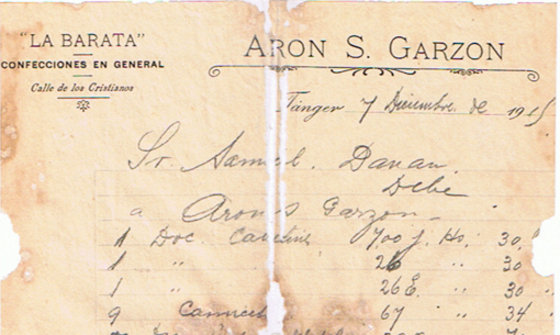 "LA BARATA"
CONFECCIONES EN GENERAL
Calle de los Cristianos
ARON S. GARZON
Tánger 7 Diciembre de 19
Sr. Samuel Danan
Debe
a Aron S Garzon
1 Doc. 700 J. Ho; 30
1 " 26 " 30
1 " 26 E. " 30 "
9 67 " 34